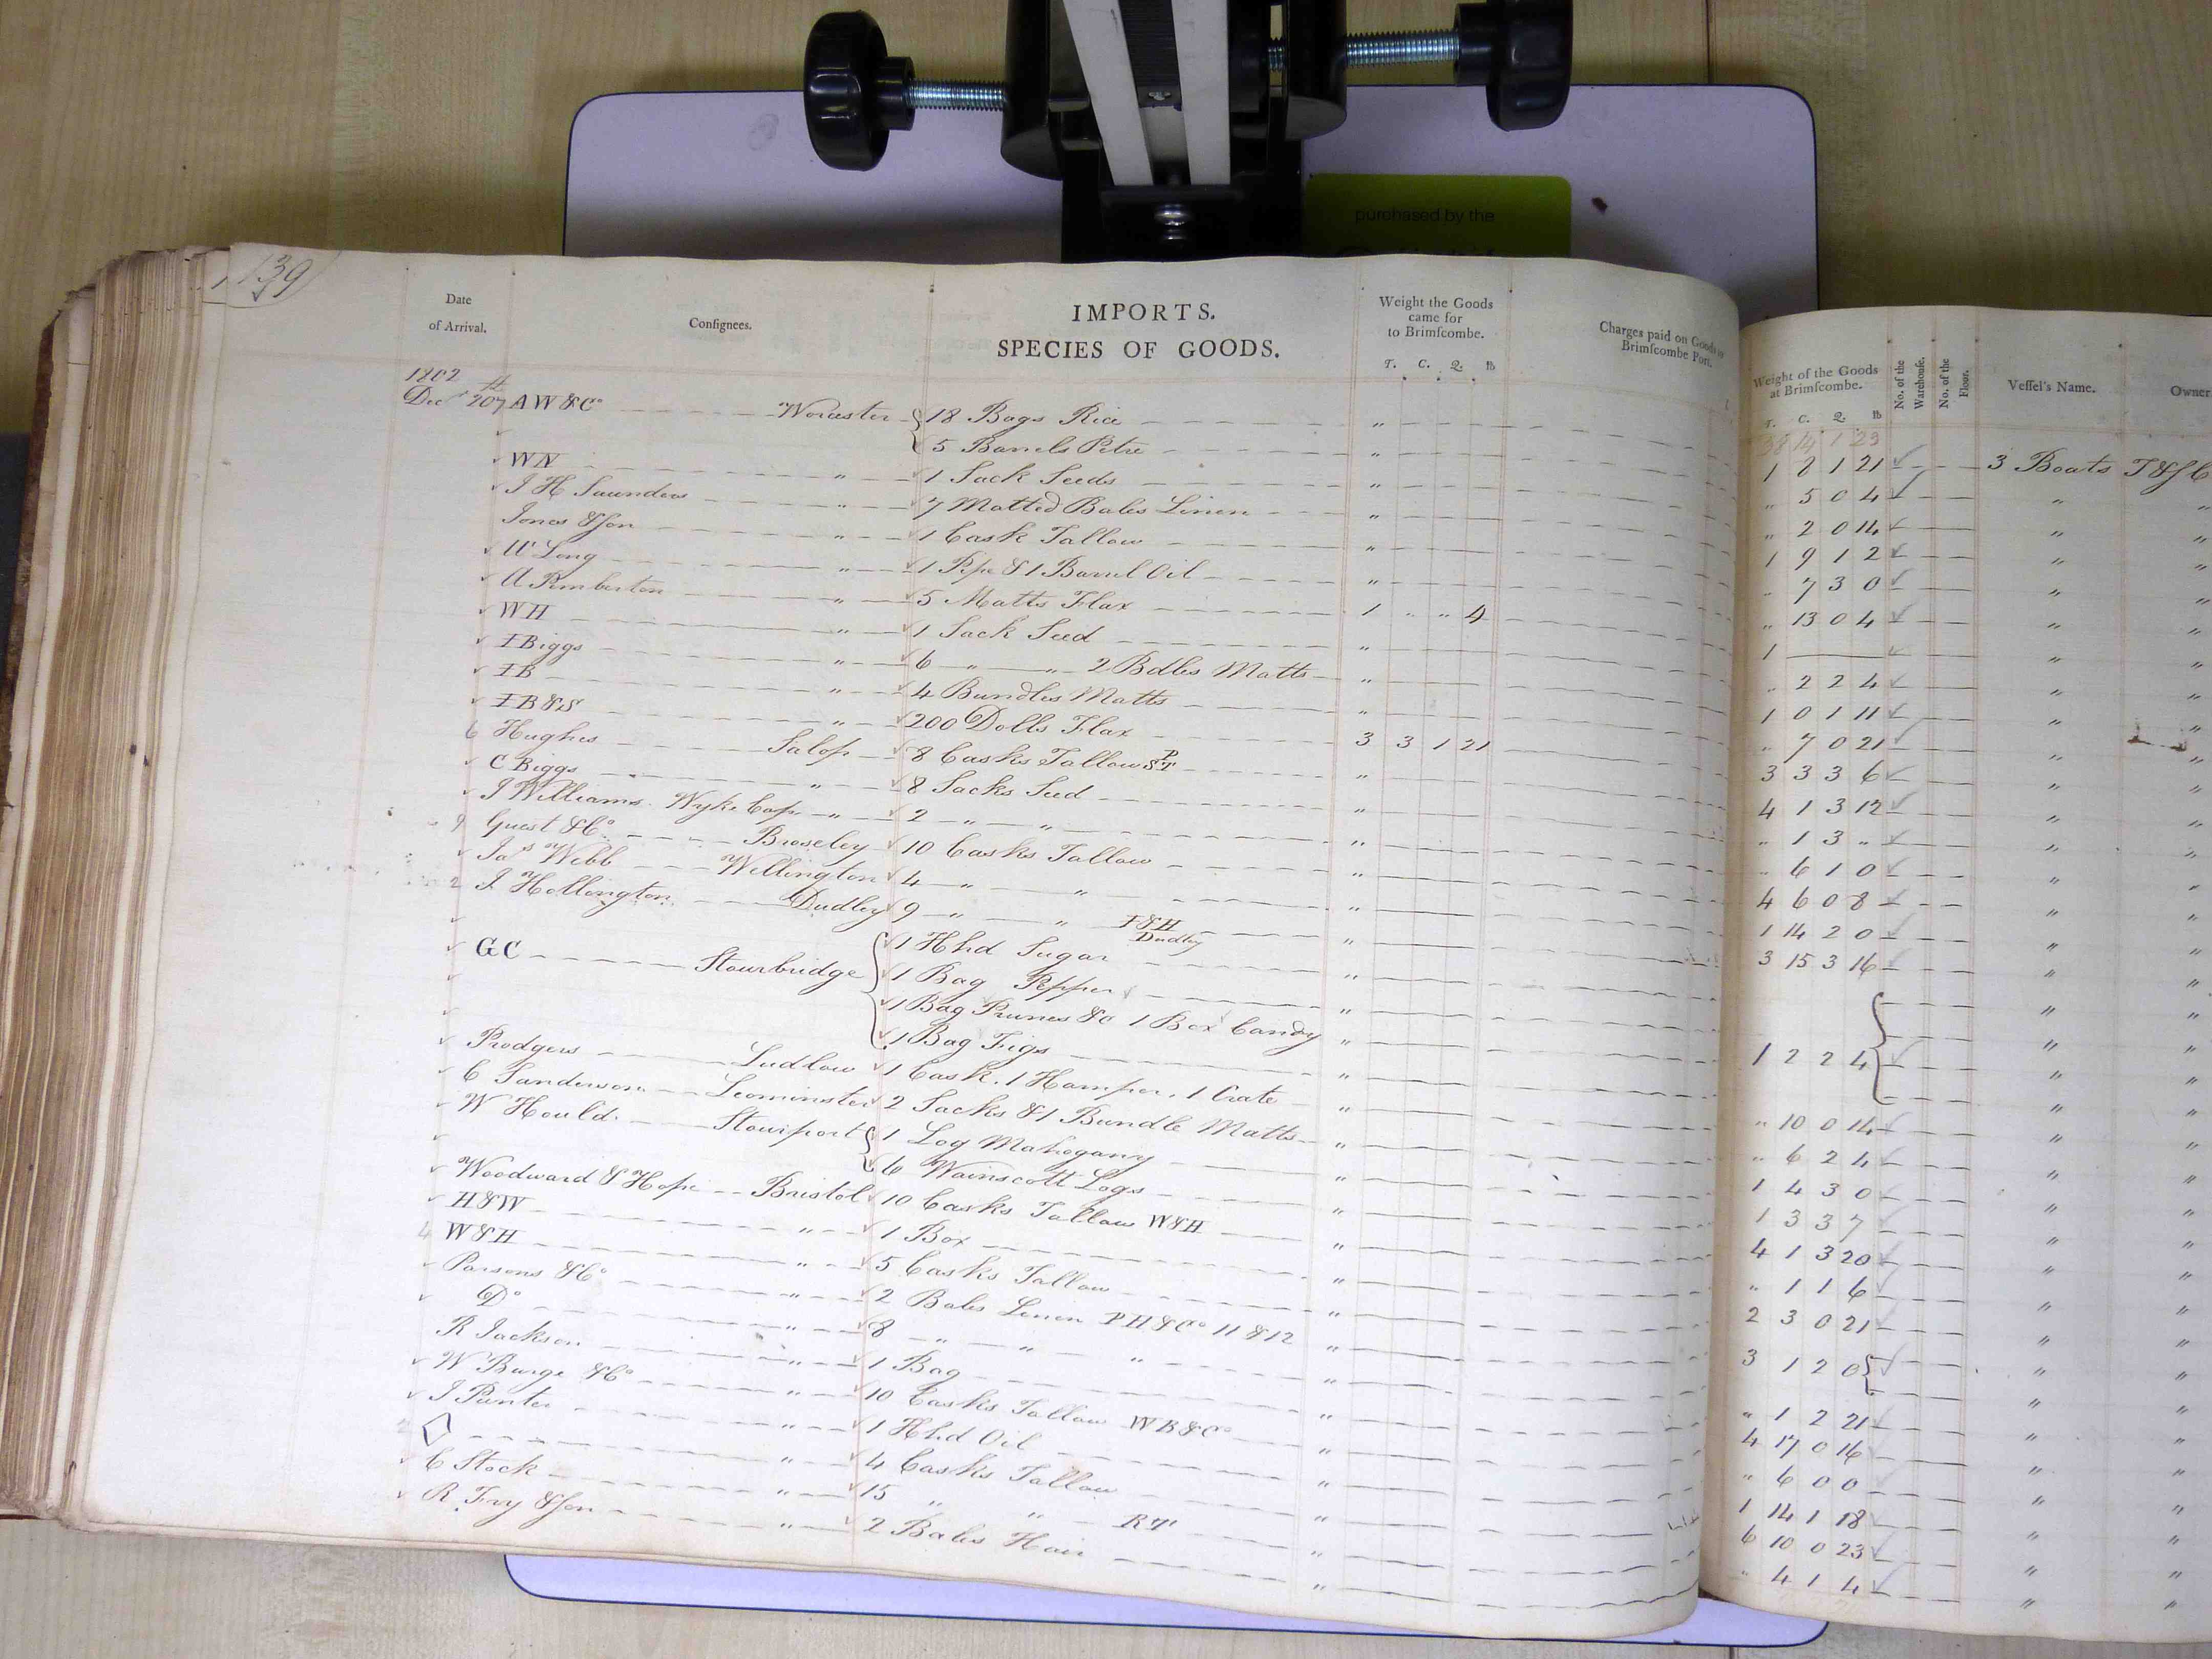 purchased by the
139
Date of Arrival. Consignees. IMPORTS. SPECIES OF GOODS. Weight the Goods came for to Brimscombe. T. C. Q. lb Charges paid on Goods to Brimscombe Port. Weight of the Goods at Brimscombe. T. C. Q. lb No. of the Warehouse. No. of the Floor. Vessel's Name. Owner
1802
38 14 1 23
Decr 20th AW&Co Worcester 18 Bags Rice " 1 8 1 21 3 Boats J&J C
5 Barrels Petre " " 5 0 4 " "
WN " 1 Sack Seeds " " 2 0 14 " "
J H Saunders " 7 Matted Bales Linen " 1 9 1 2 " "
Jones & Son " 1 Cask Tallow " " 7 3 0 " "
W Long " 1 Pipe & 1 Barrel Oil " " 13 0 4 " "
A Pemberton " 5 Matts Flax 1 " " 4 1 " "
WH " 1 Sack Seed " " 2 2 4 " "
I Biggs " 6 " " 2 Bdles Matts " 1 0 1 11 " "
IB " 4 Bundles Matts " " 7 0 21 " "
IB&S " 200 Dolls Flax 3 3 1 21 3 3 3 6 " "
6 Hughes Salop 8 Casks Tallow " 4 1 3 12 " "
C Biggs " 8 Sacks Seed " " 1 3 " " "
J Williams Wyke Cop " 2 " " " " 6 1 0 " "
9 Guest & Co Broseley 10 Casks Tallow " 4 6 0 8 " "
Jas Webb Wellington 4 " " " 1 14 2 0 " "
2 J Hollington Dudley 9 " " I&H Dudley " 3 15 3 16 " "
GC Stourbridge 1 Hhd Sugar " " "
1 Bag Pepper " 1 2 2 4 " "
1 Bag Prunes &c 1 Box Candy " " "
1 Bag Figs " " "
Prodgers Ludlow 1 Cask. 1 Hamper. 1 Crate " " 10 0 14 " "
C Sanderson Leominster 2 Sacks & 1 Bundle Matts " " 6 2 4 " "
W Hould Stourport 1 Log Mahogany " 1 4 3 0 " "
6 Wainscott Logs " 1 3 3 7 " "
Woodward & Hope Bristol 10 Casks Tallow W&H " 4 1 3 20 " "
H&W " 1 Box " " 1 1 6 " "
4 W&H " 5 Casks Tallow " 2 3 0 21 " "
Parsons & Co " 2 Bales Linen PH&Co 11 & 12 " 3 1 2 0 " "
Do " 8 " " " " " "
R Jackson " 1 Bag " " 1 2 21 " "
W Burge & Co " 10 Casks Tallow WB&Co " 4 17 0 16 " "
J Punter " 1 Hhd Oil " " 6 0 0 " "
2 ◇ " 4 Casks Tallow " 1 14 1 18 " "
C Stock " 15 " " RT " 6 10 0 23 " "
R Fry & Son " 2 Bales Hair " " 4 1 4 " "